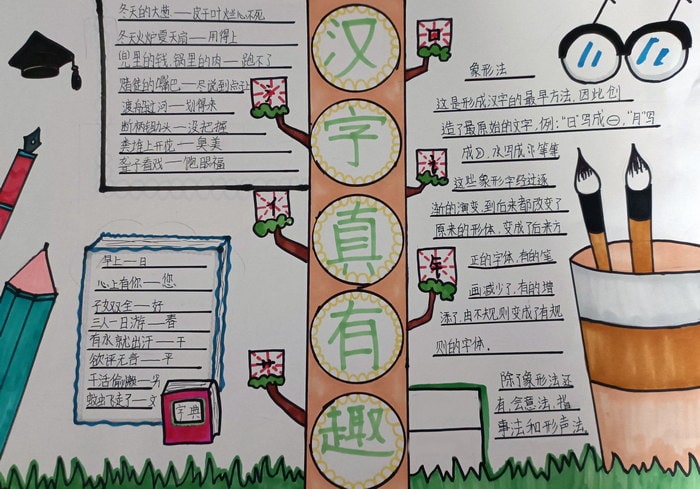 冬天的大葱——皮干叶烂心不死
冬天火炉夏天扇——用得上
兜里的钱,锅里的肉——跑不了
赌徒的嘴巴——尽说到点子上
渡船过河——划得来
断柄锄头——没把握
粪堆上开花——臭美
聋子看戏——饱眼福
汉
字
真
有
趣
早上——日
心上有你——您
子女双全——好
三人一日游——春
有水就出汗——干
欲评无言——平
干活偷懒——男
蚊虫下走了——文
字典
象形法
这是形成汉字的最早方法,因此创
造了最原始的文字,例:“日”写成,“月”写
成,水写成等等
这些象形字经过逐
渐的演变,到后来都改变了
原来的形体,变成了后来方
正的字体,有的笔
画减少了,有的增
添了,由不规则变成了有规
则的字体.
除了象形法还
有,会意法、指
事法和形声法